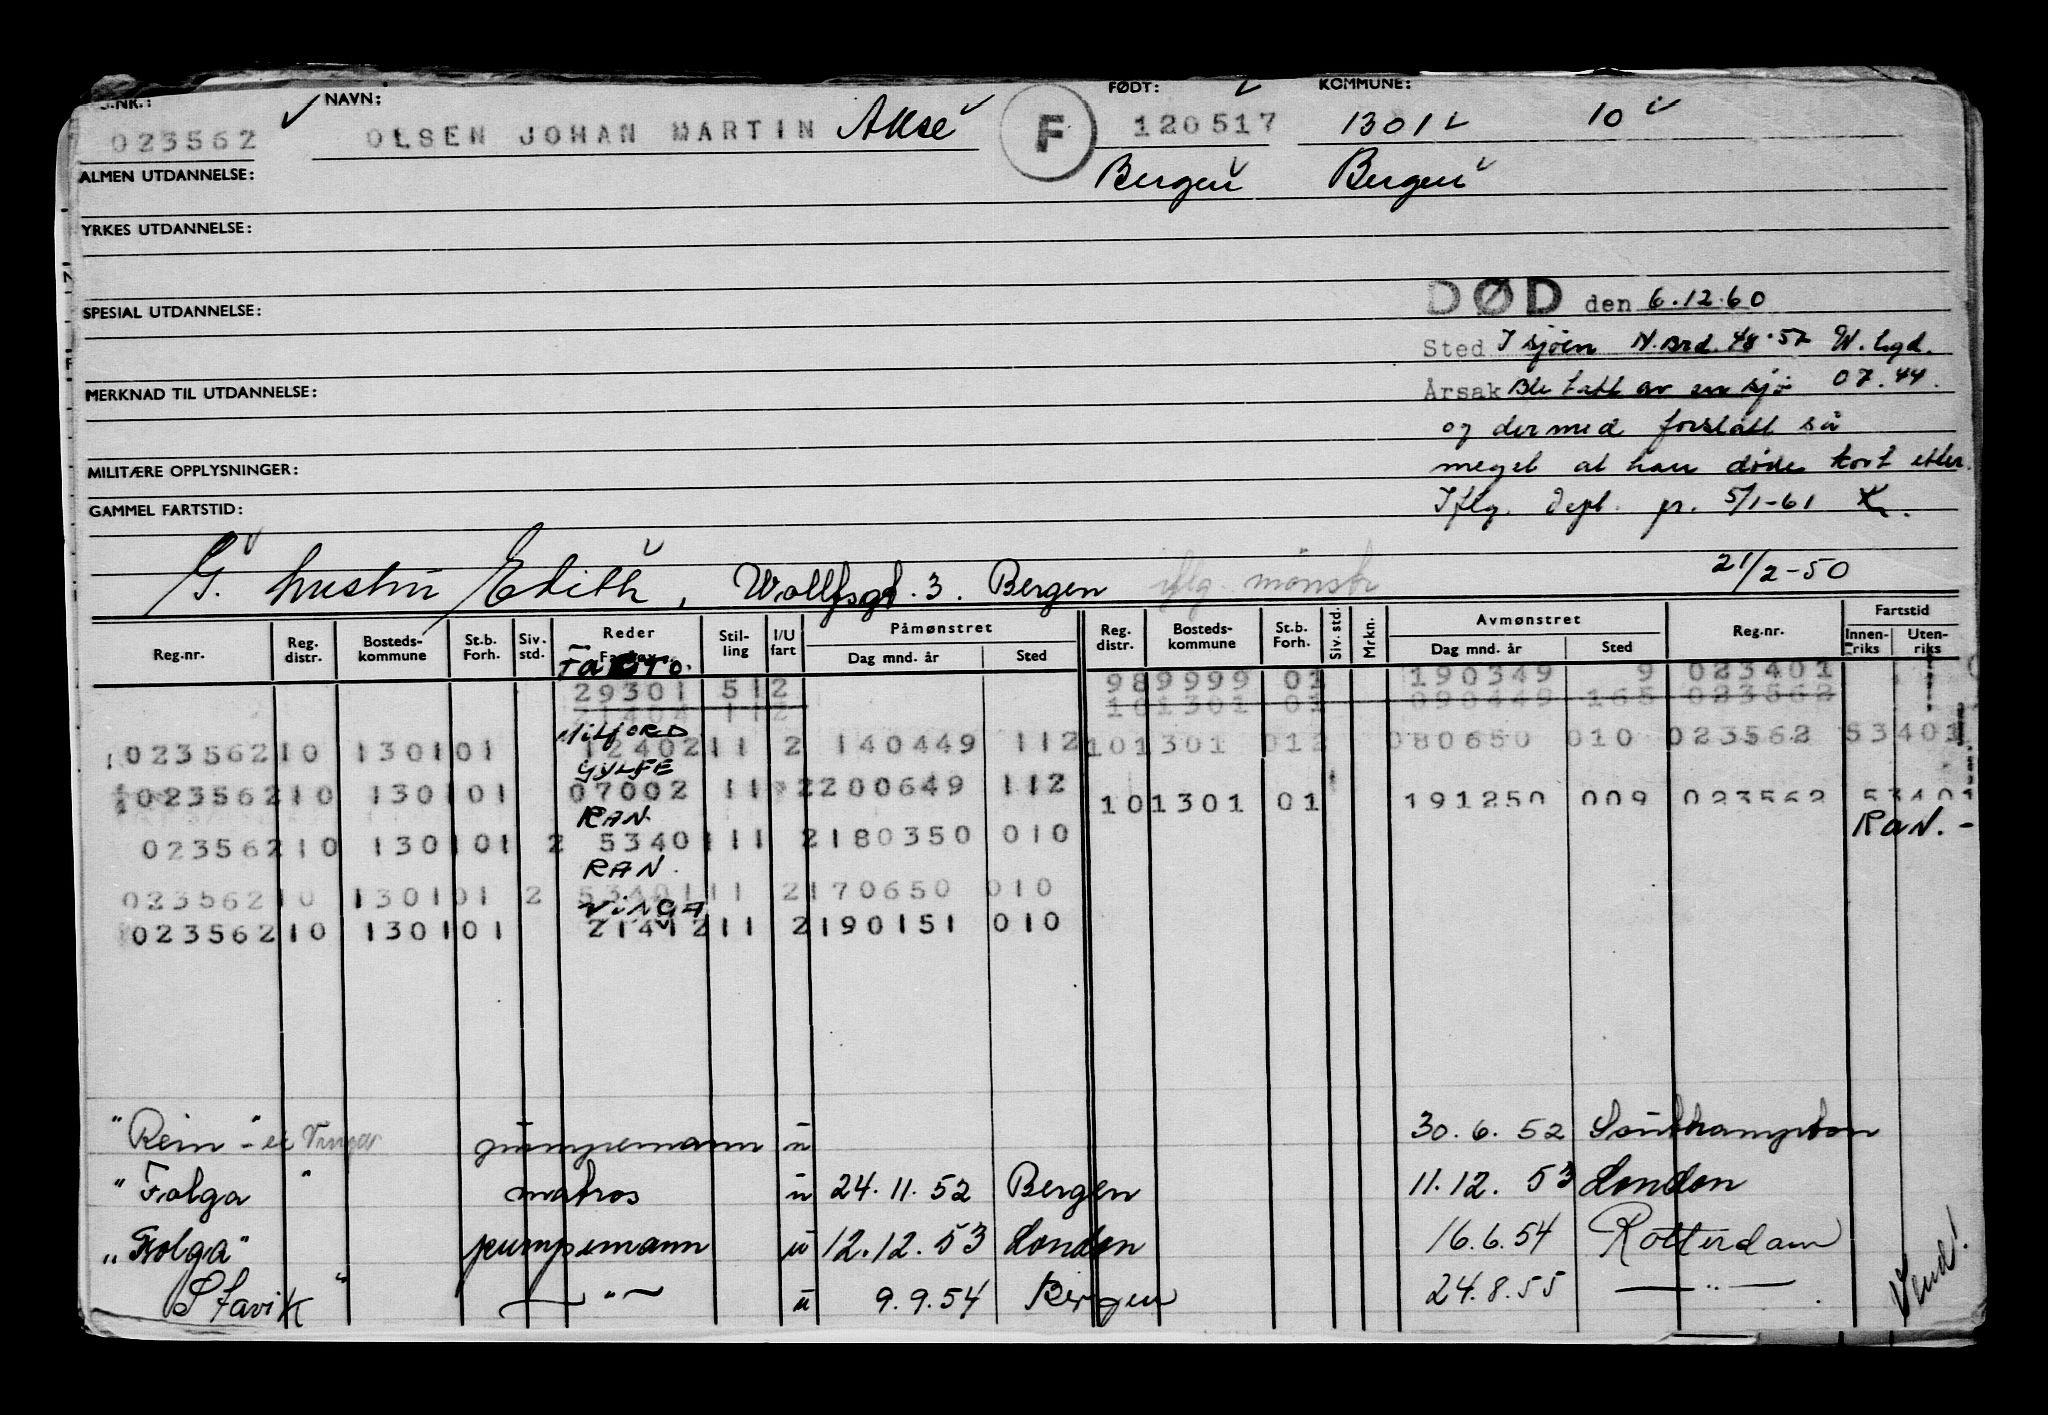 S.NR.: NAVN: FØDT: KOMMUNE:
023562 OLSEN JOHAN MARTIN Akse F 120517 1301 10
ALMEN UTDANNELSE: Bergen Bergen
YRKES UTDANNELSE:
SPESIAL UTDANNELSE: DØD den 6.12.60
Sted I sjøen N.Brd. 48.57 W.lgd.
MERKNAD TIL UTDANNELSE: Årsak Ble tatt av en sjø 07.44.
og dermed forslått så
MILITÆRE OPPLYSNINGER: meget at han døde kort etter.
GAMMEL FARTSTID: Iflg. Dept. pr. 5/1-61
G. hustru Edith, Wollfsgt. 3. Bergen iflg. mønstr 21/2-50
Reg.nr. Reg. distr. Bosteds-kommune St.b. Forh. Siv. std. Reder Fartøy Stil-ling I/U fart Påmønstret Dag mnd. år Sted Reg. distr. Bosteds-kommune St.b. Forh. Siv. std. Mrkn. Avmønstret Dag mnd. år Sted Reg.nr. Fartstid Innen-riks Uten-riks
29301 51 2 98 9999 01 190349 9 023401
21404 11 2 10 1301 01 090449 165 023562
MILFORD
023562 10 1301 01 12402 11 2 140449 112 10 1301 012 080650 010 023562 53401
GYLFE
023562 10 1301 01 07002 11 2 200649 112 10 1301 01 191250 009 023562 53401
RAN. RAN. -
023562 10 1301 01 2 53401 11 2 180350 010
RAN.
023562 10 1301 01 2 53401 11 2 170650 010
VINGA
023562 10 1301 01 21412 11 2 190151 010
"Rein" - pumpemann u 30.6.52 Southampton
"Folga" matros u 24.11.52 Bergen 11.12.53 London
"Folga" pumpemann u 12.12.53 London 16.6.54 Rotterdam
Stavik" — " — u 9.9.54 Bergen 24.8.55 — " —
Vend!